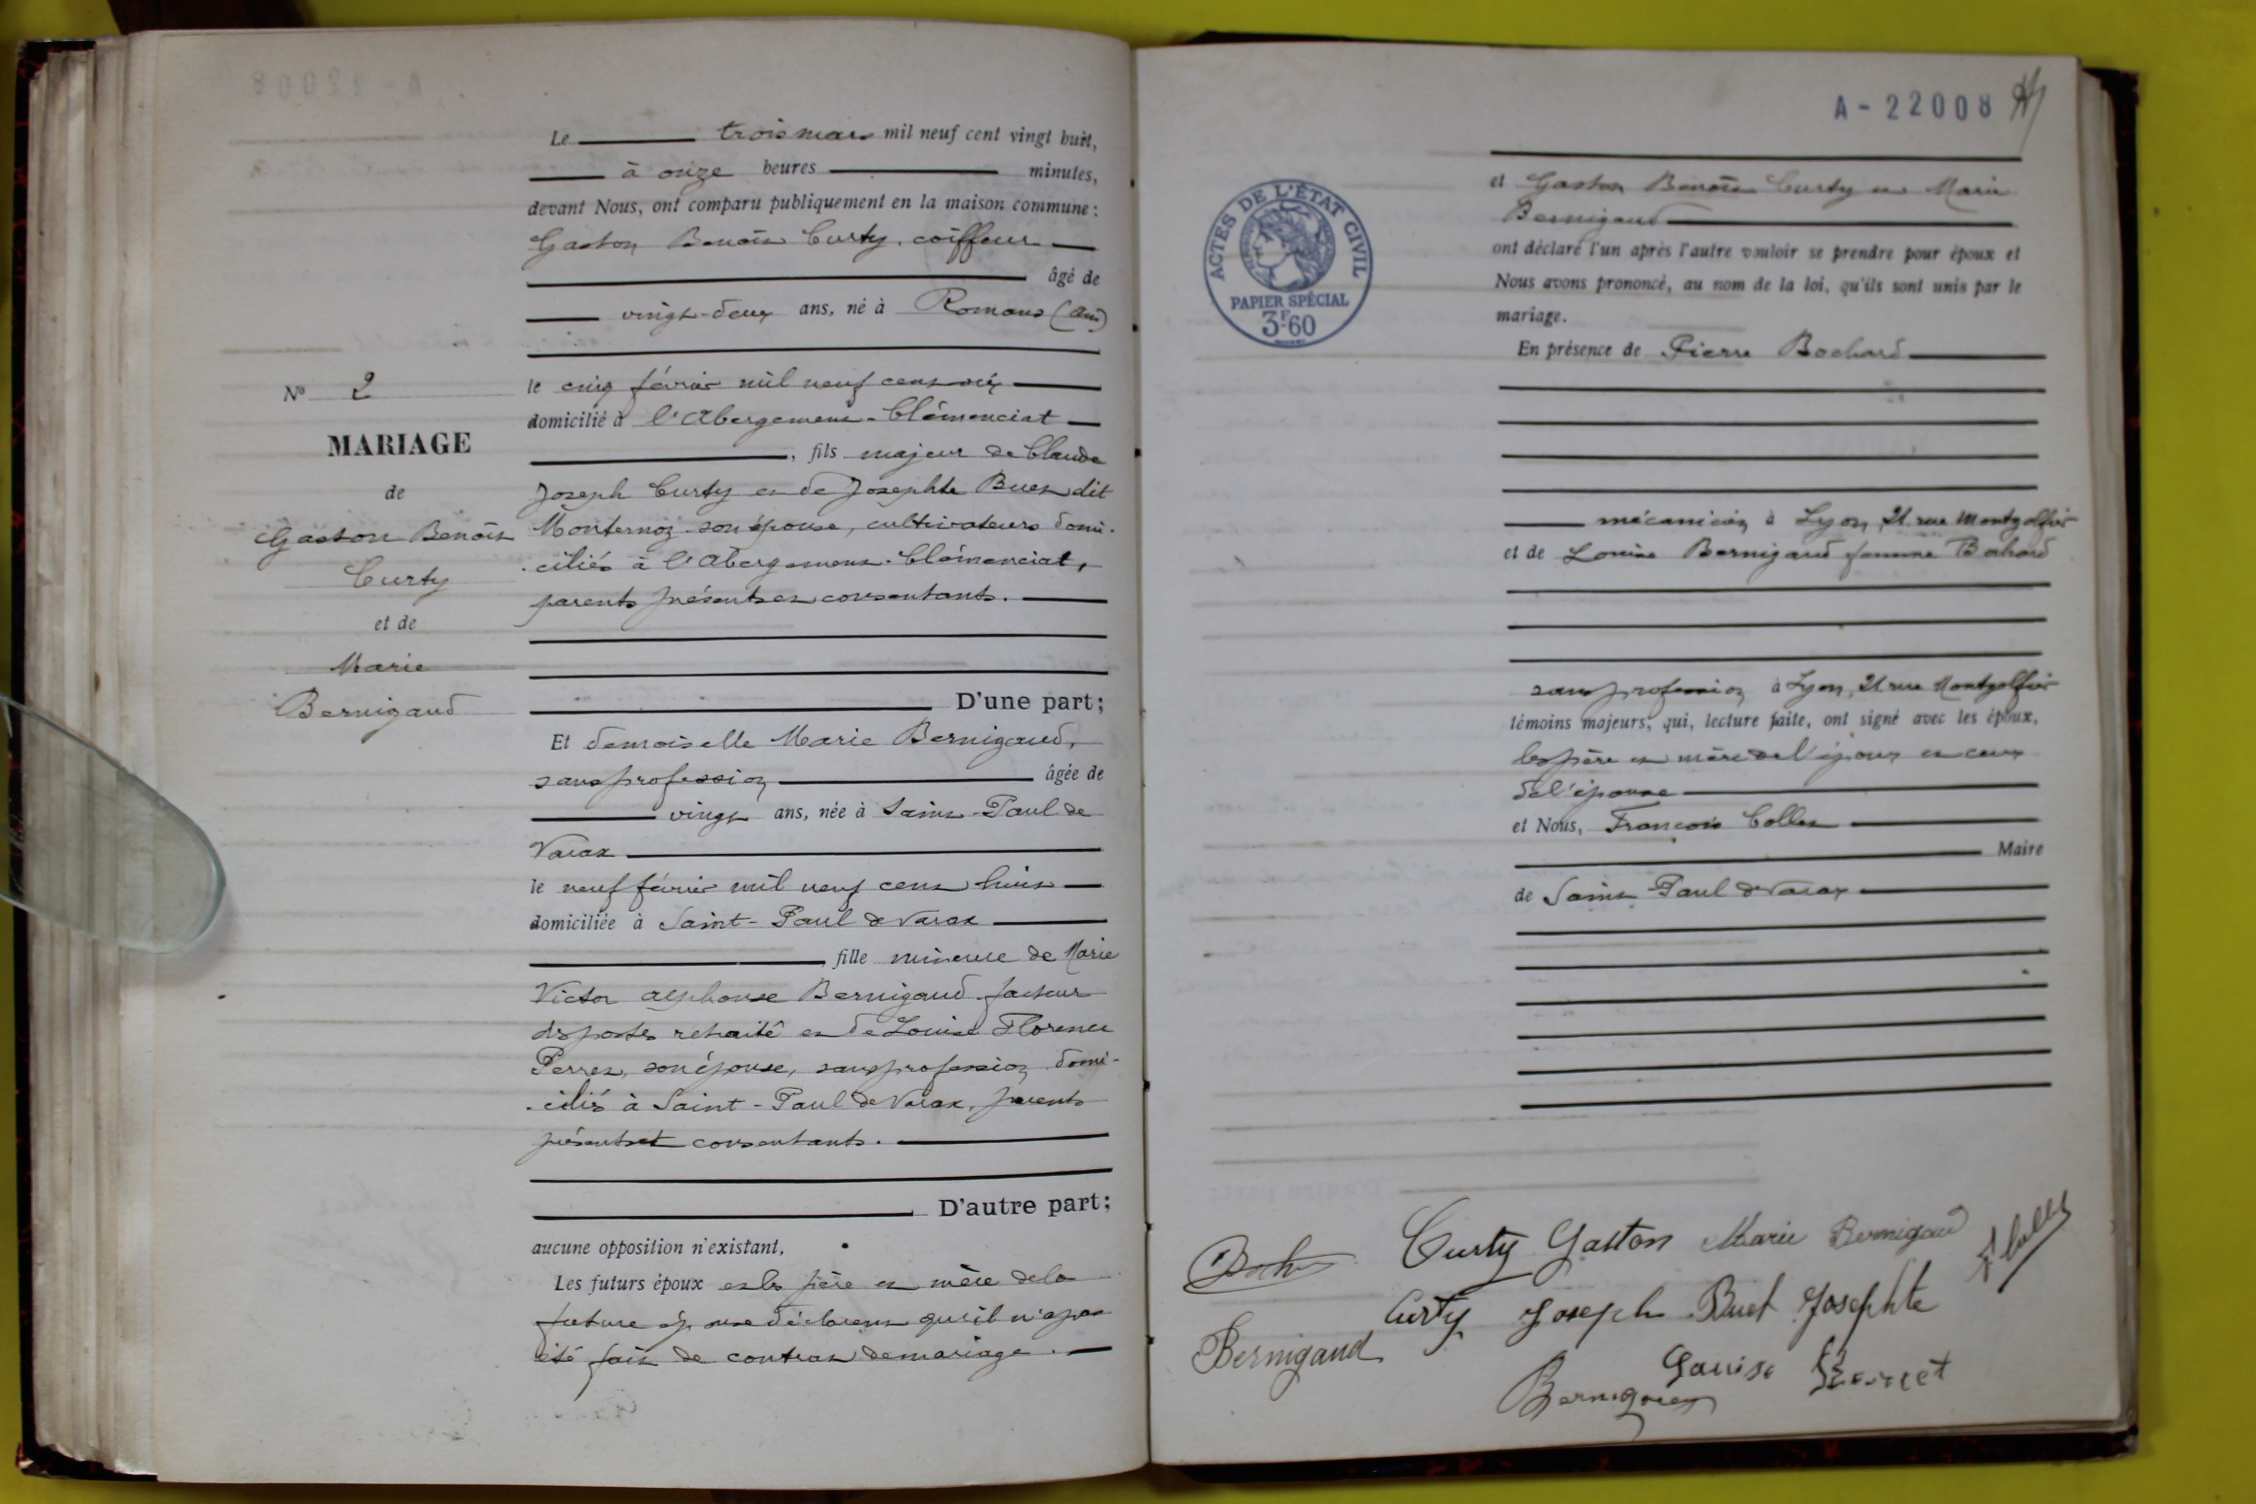 Le trois mars mil neuf cent vingt huit,
à onze heures minutes,
devant Nous, ont comparu publiquement en la maison commune :
Gaston Benoît Curty, coiffeur
âgé de
vingt-deux ans, né à Romans (Ain)
le cinq février mil neuf cent six
domicilié à l'Abergement-Clémenciat
, fils majeur de Claude
Joseph Curty et de Josephte Buet dit
Monternoz son épouse, cultivateurs domi-
-ciliés à l'Abergement-Clémenciat,
parents présents et consentants.
D'une part;
Et demoiselle Marie Bernigaud,
sans profession âgée de
vingt ans, née à Saint-Paul de
Varax
le neuf février mil neuf cent huit
domiciliée à Saint-Paul de Varax
fille mineure de Marie
Victor Alphonse Bernigaud facteur
des postes retraité et de Louise Florence
Perret, son épouse, sans profession domi-
-ciliés à Saint-Paul de Varax, parents
présents et consentants.
D'autre part;
aucune opposition n'existant,
Les futurs époux et les père et mère de la
future épouse déclarent qu'il n'a pas
été fait de contrat de mariage.
Nº 2
MARIAGE
de
Gaston Benoît
Curty
et de
Marie
Bernigaud
A-22008
ACTES DE L'ÉTAT CIVIL
PAPIER SPÉCIAL
3F.60
et Gaston Benoît Curty et Marie
Bernigaud
ont déclaré l'un après l'autre vouloir se prendre pour époux et
Nous avons prononcé, au nom de la loi, qu'ils sont unis par le
mariage.
En présence de Pierre Bochard
mécanicien à Lyon, 21 rue Montgolfier
et de Louise Bernigaud femme Bochard
sans profession à Lyon, 21 rue Montgolfier
témoins majeurs, qui, lecture faite, ont signé avec les époux,
les père et mère de l'époux et ceux
de l'épouse
et Nous, François Collet
Maire
de Saint-Paul de Varax
Curty Gaston Marie Bernigaud
Curty Joseph Buet Josephte
Bernigaud
Louise Perret